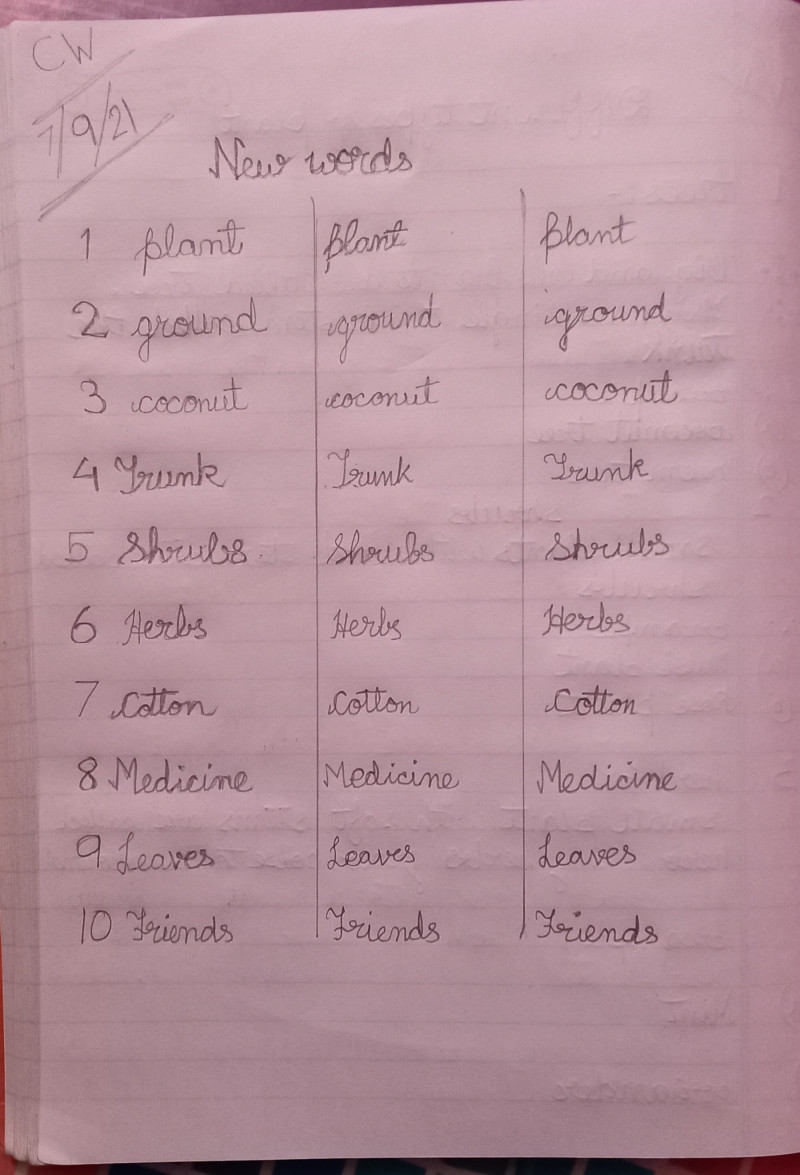 CW
7/9/21
New words
1 plant plant plant
2 ground ground ground
3 coconut coconut coconut
4 Trunk Trunk Trunk
5 Shrubs Shrubs Shrubs
6 Herbs Herbs Herbs
7 Cotton Cotton Cotton
8 Medicine Medicine Medicine
9 Leaves Leaves Leaves
10 Friends Friends Friends